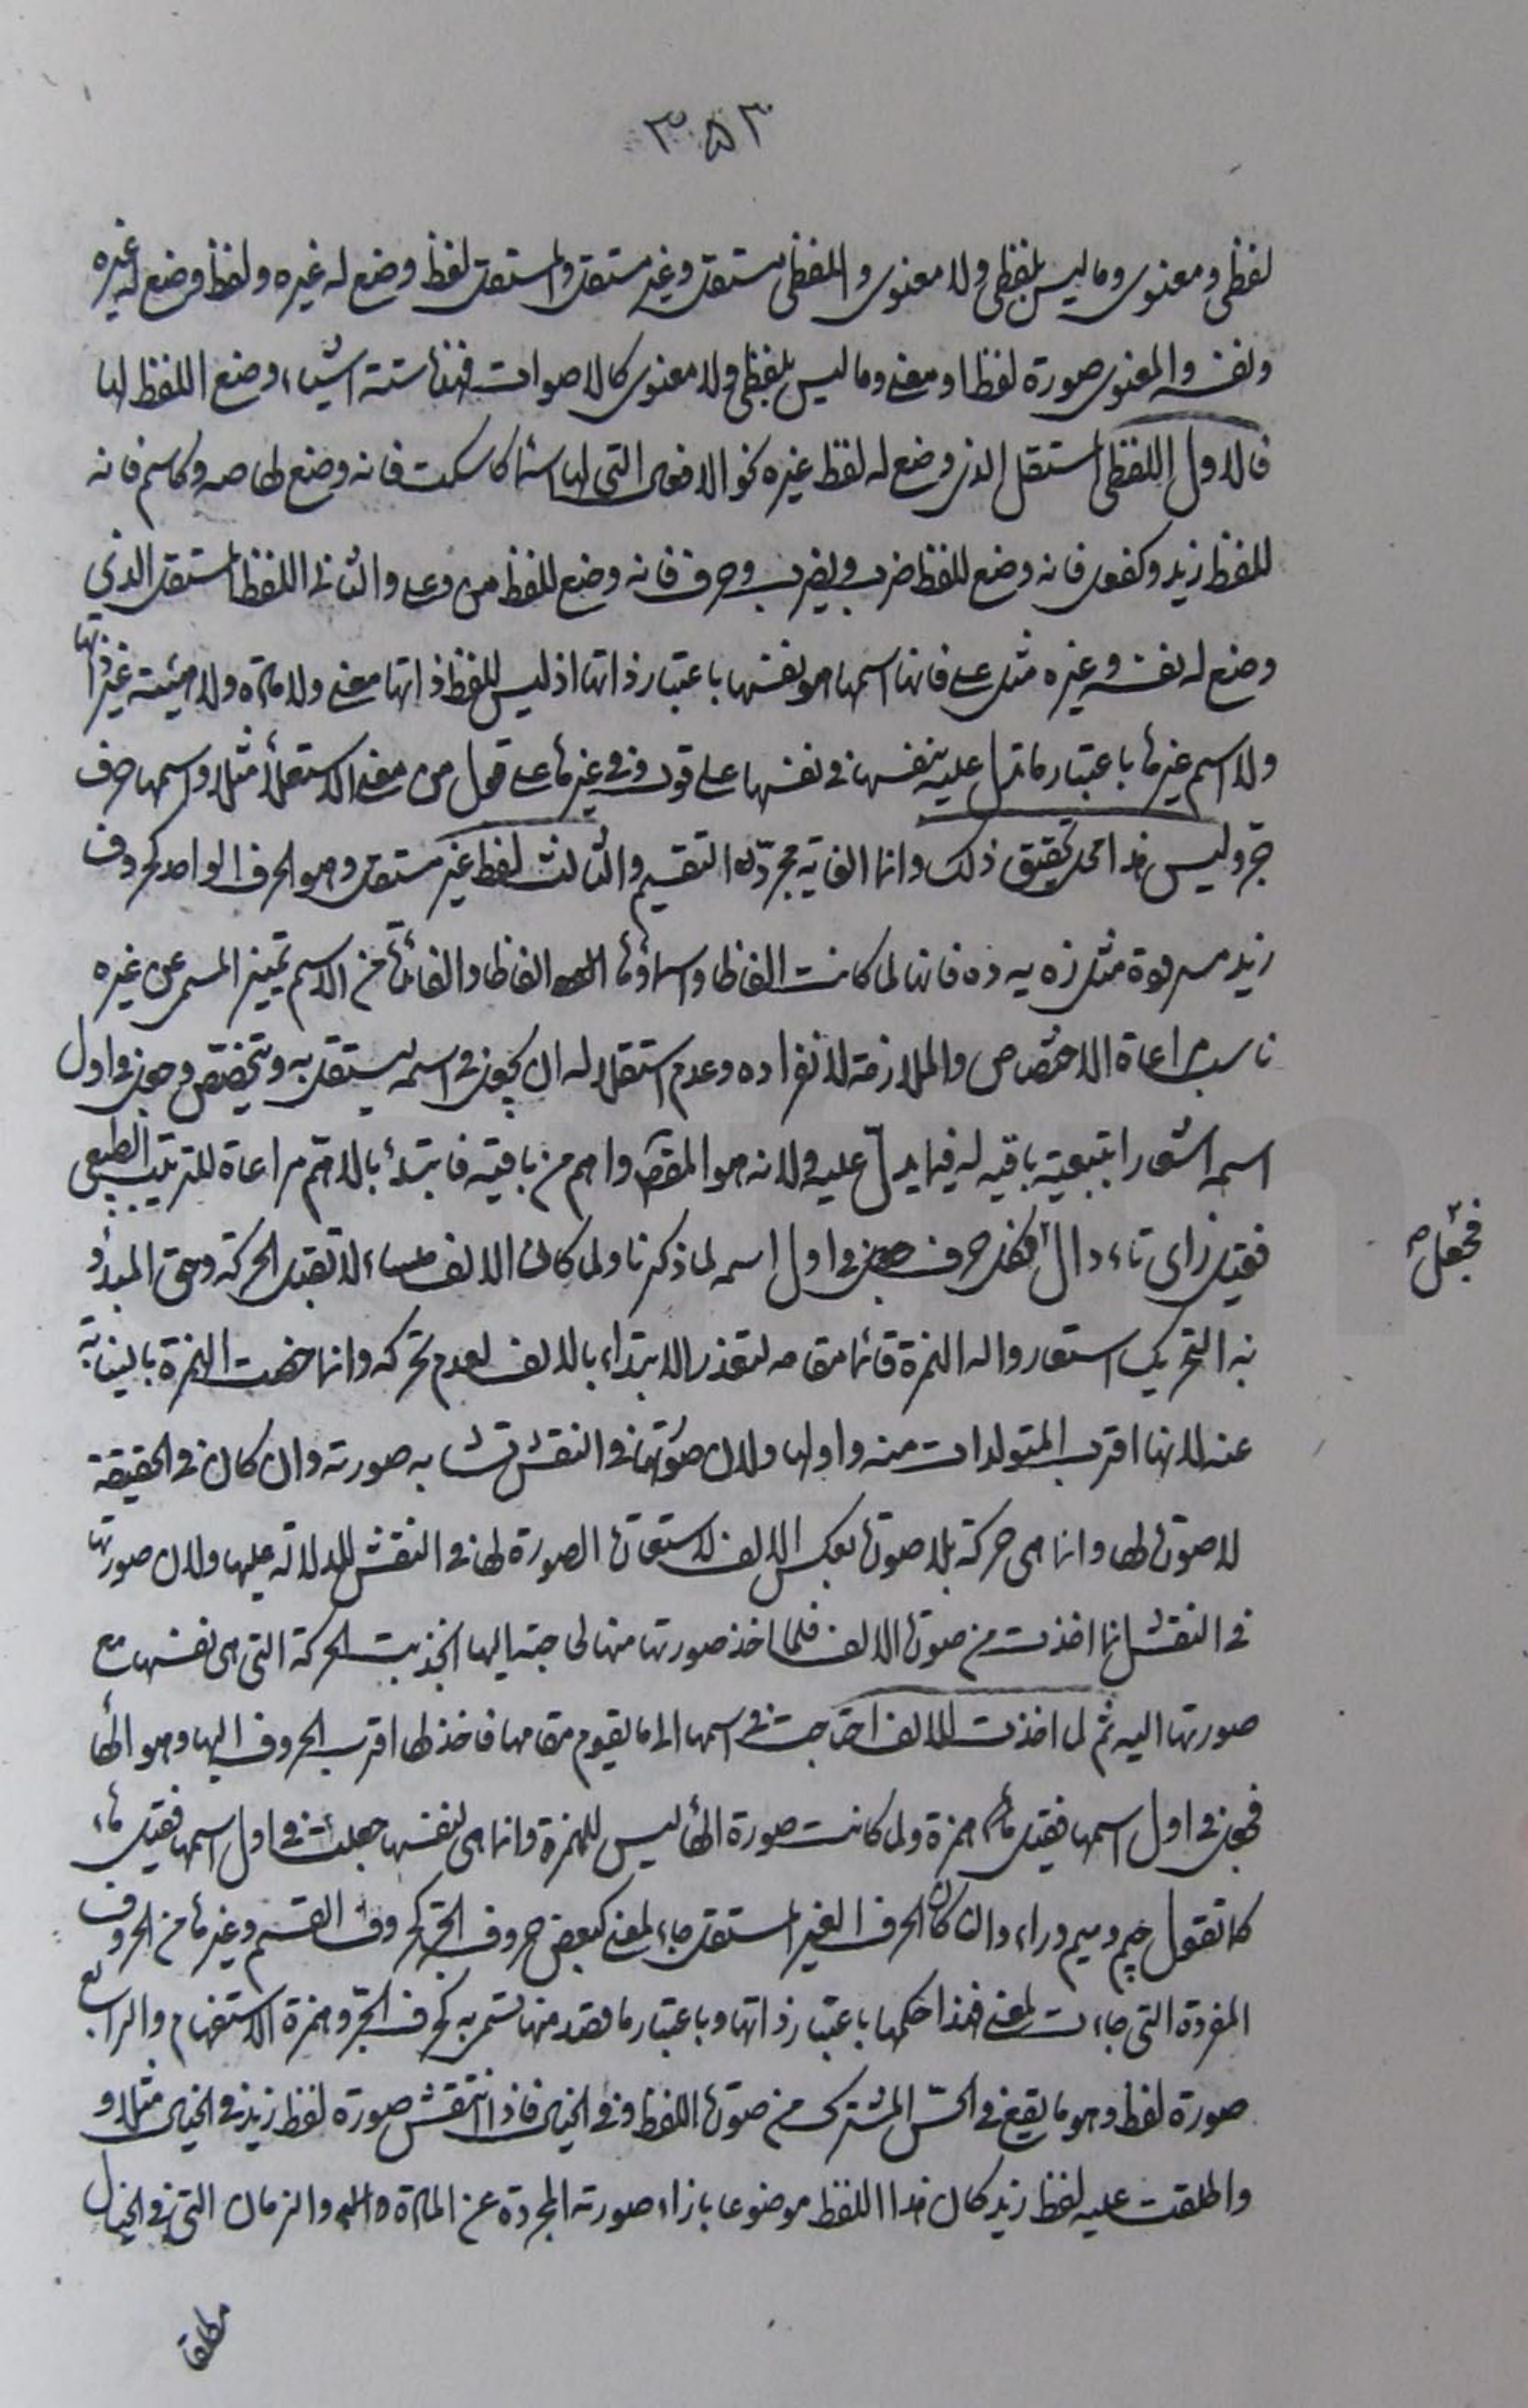 ٣٥٣
لفظى ومعنوى وما ليس بلفظى ولا معنوى واللفظى مستقل وغير مستقل والمستقل لفظ وضع له غيره ولفظ وضع له غيره
ونفسه والمعنوى صورة لفظ او معنى وما ليس بلفظى ولا معنوى كالاصوات فهذه ستة اشياء وضع اللفظ لها
فالاول اللفظى المستقل الذى وضع له لفظ غيره نحو الافعال التى لها اسماء كاسكت فانه وضع لها صه وكاسم فانه
للفظ زيد وكفعل فانه وضع للفظ ضرب ويضرب وحرف فانه وضع للفظ من وعلى والثانى اللفظ المستقل الذى
وضع له نفسه وغيره مثل على فانها اسمها هو نفسها باعتبار ذاتها اذ ليس للفظ ذاتها معنى ولا مادة ولا هيئة غير ذاتها
ولا اسم غيرها باعتبار ما تدل عليه بنفسها فى نفسها على قول وفى غيرها على قول من معنى الاستعلاء مثلا واسمها حرف
جر وليس هذا محل تحقيق ذلك وانما الغاية مجرد التقسيم والثالث لفظ غير مستقل وهو الحرف الواحد كحروف
زيد مسرودة مثل زه يه ده فانها لما كانت الفاظا واسماؤها الفاظا والفائدة من الاسم تمييز المسمى عن غيره
ناسب مراعاة الاختصاص والملازمة لانفراده وعدم استقلاله ان يجعل فى اسمه ليستقل به ويتخصص وجعل فى اول
اسمه اشعارا بتبعية باقيه له فيما يدل عليه ولانه هو المقصود واهم من باقيه فابتدئ بالاهم مراعاة للترتيب الطبيعى
فقيل زاى ياء دال فكل حرف جعل فى اول اسمه لما ذكرنا ولما كان الالف ملساء لا تقبل الحركة وحق المبدؤ
به التحريك استعاروا له الهمزة قائما مقامه لتعذر الابتداء بالالف لعدم تحركه وانما خصت الهمزة بالنيابة
عنه لانها اقرب المتولدات منه واولها ولان صورتها فى النقش تشابه صورته وان كان فى الحقيقة
لا صورة لها وانما هى حركة بلا صورة بعكس الالف لاستعارة الصورة لها فى النقش للدلالة عليها ولان صورتها
فى النقش انما اخذت من صورة الالف فلما اخذ صورتها منها لحاجته اليها انجذبت الحركة التى هى نفسها مع
صورتها اليه ثم لما اخذت للالف احتاجت فى اسمها الى ما يقوم مقامها فاخذ لها اقرب الحروف اليها وهو الهاء
فجعل فى اول اسمها فقيل هاء همزة ولما كانت صورة الهاء ليس للهمزة وانما هى لنفسها جعلت فى اول اسمها فقيل هاء
كما تقول جيم وميم وراء وان كان الحرف الغير المستقل جاء لمعنى كبعض حروف الجر كحروف القسم وغيرها من الحروف
المفردة التى جاءت لمعنى فهذا حكمها باعتبار ذاتها وباعتبار ما قصد منها تسمى به كحرف الجر وهمزة الاستفهام والرابع
صورة لفظ وهو ما يقع فى الحس المشترك من صورة اللفظ وفى الخيال فاذا انتقش صورة لفظ زيد فى الخيال مثلا و
واطلقت عليه لفظ زيد كان هذا اللفظ موضوعا بازاء صورته المجردة عن المادة والزمان التى فى الخيال
فجعل صح
مطلقا